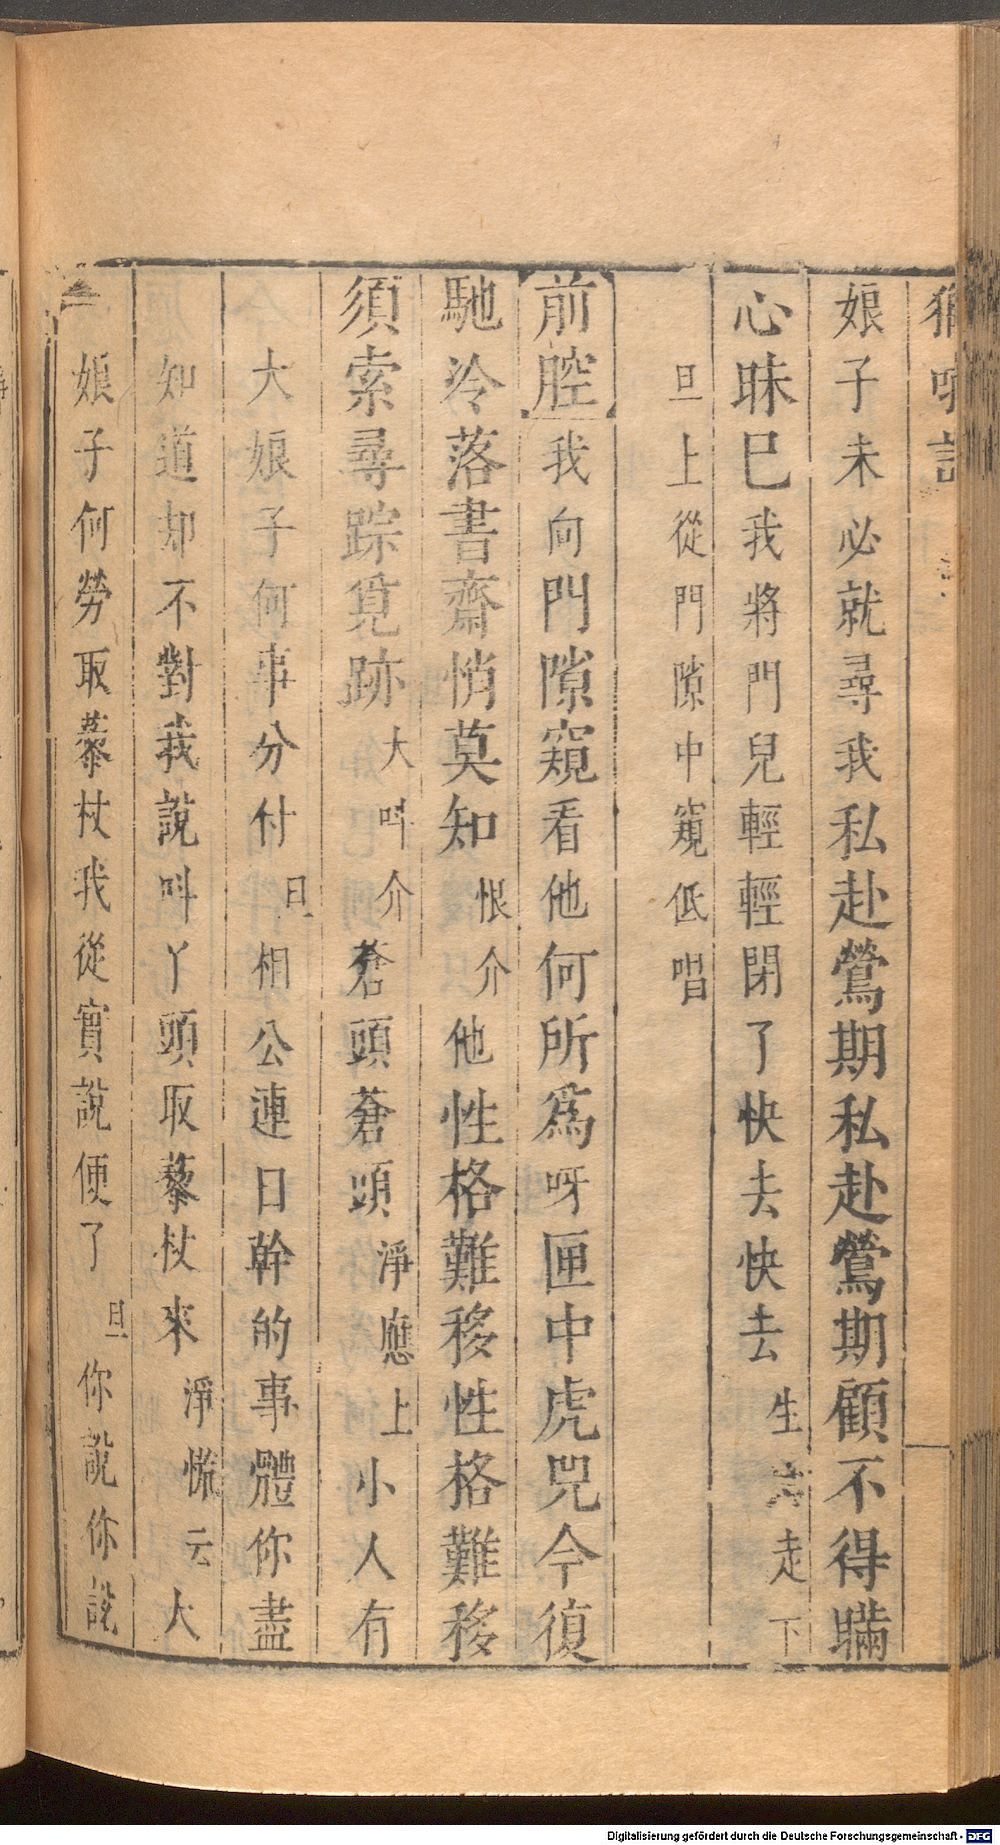 娘子未必就尋我私赴鶯期私赴鶯期顧不得瞞
心昧巳我將門兒輕輕閉了快去快去生走下
旦上從門隙中窺低唱
前腔我向門隙窺看他何所爲呀匣中虎兕今復
馳冷落書齋悄莫知恨介他性格難移性格難移
須索尋踪覓跡大叫介蒼頭蒼頭淨應上小人有
大娘子何事分付旦相公連日幹的事體你盡
知道却不對我說叫丫頭取藜杖來淨慌云大
娘子何勞取藜杖我從實說便了旦你說你說
Digitalisierung gefördert durch die Deutsche Forschungsgemeinschaft - DFG